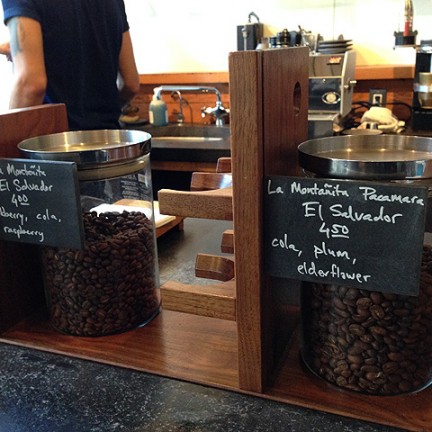 El Salvador
4.00
cola,
raspberry
La Montañita Pacamara
El Salvador
4.50
cola, plum,
elderflower